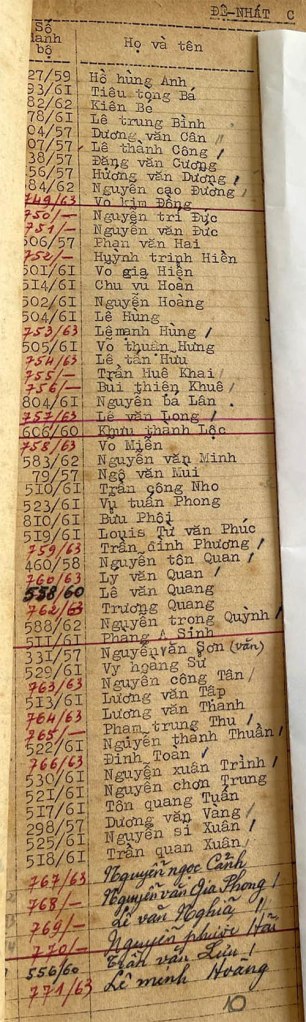 ĐỆ-NHẤT C
Số danh bộ Họ và tên
27/59 Hồ hùng Anh
93/61 Tiêu tông Bá
82/62 Kiên Be
78/61 Lê trung Bình
04/57 Dương văn Cân
07/57 Lê thành Công /
38/57 Đặng văn Cương
56/57 Hương văn Dương /
84/62 Nguyễn cao Đương /
749/63 Vo kim Đồng
750/- Nguyễn trí Đức
751/- Nguyễn văn Đức
506/57 Phan văn Hai
752/- Huỳnh trinh Hiền
501/61 Vo gia Hiển
514/61 Chu vu Hoàn
502/61 Nguyễn Hoàng
504/61 Lê Hùng
753/63 Lêmanh Hùng /
505/61 Vo thuần Hưng
754/63 Lê tấn Hưu
755/- Trần Huê Khai /
756/- Bui thiện Khuê /
804/61 Nguyễn bá Lân
757/63 Lê văn Long /
606/60 Khưu thành Lộc
758/63 Vo Miên
583/62 Nguyễn văn Minh
79/57 Ngô văn Mui
510/61 Trần công Nho
523/61 Vu tuấn Phong
810/61 Bửu Phôi
519/61 Louis Tư văn Phúc
759/63 Trần đình Phương /
460/58 Nguyễn tôn Quan /
760/63 Ly văn Quan /
558/60 Lê văn Quang
762/63 Trương Quang
588/62 Nguyễn trong Quỳnh /
511/61 Phang A Sinh
331/57 Nguyễn văn Sơn (văn)
529/61 Vy hoàng Sử
763/63 Nguyễn công Tân /
513/61 Lương văn Tập
764/63 Lương văn Thanh
765/- Pham trung Thu /
522/61 Nguyễn thanh Thuần /
766/63 Đinh Toàn /
530/61 Nguyễn xuân Trình /
521/61 Nguyễn chơn Trung
517/61 Tôn quang Tuấn
298/57 Dương văn Vàng /
525/61 Nguyễn sĩ Xuân /
518/61 Trần quan Xuân
767/63 Nguyễn ngọc Cảnh
768/- Nguyễn văn Gia Phong !
769/- Lê văn Nghĩa !
770/- Nguyễn phước Hải
556/60 Trần văn Lưu !
771/63 Lê minh Hoàng
10